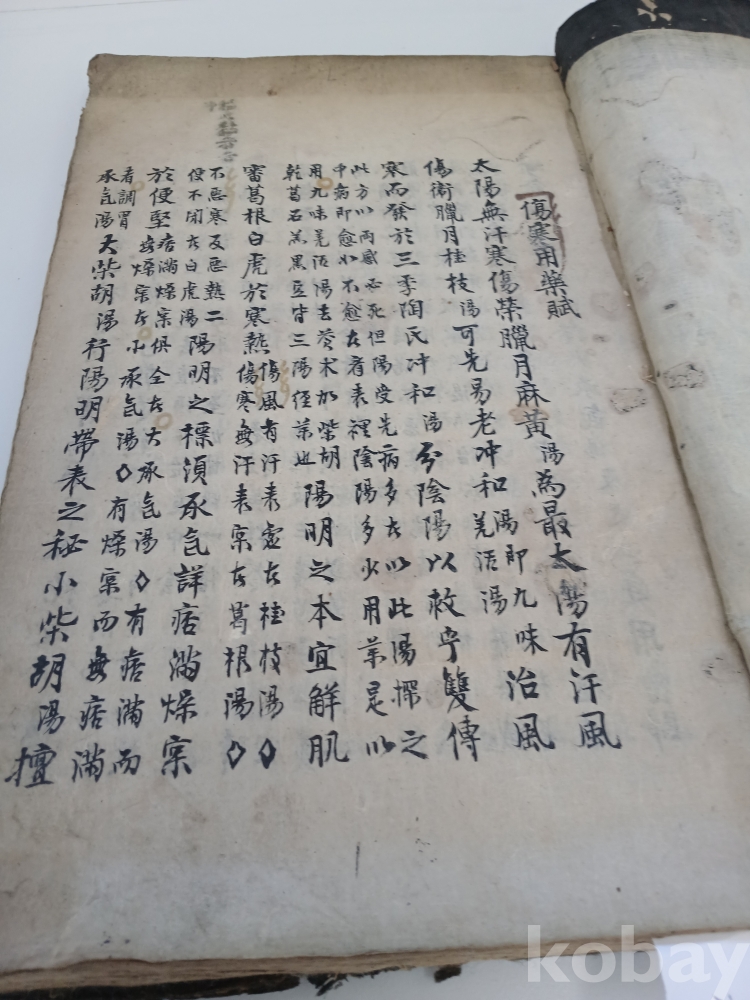 傷寒用藥賦
太陽無汗寒傷榮臘月麻黃湯為最太陽有汗風
傷衛臘月桂枝湯可先易老冲和湯即九味羌活湯治風
寒而發於三季陶氏冲和湯分陰陽以救乎雙傳
此方以兩感必死但陽受先病多在以此湯探之
中病即愈如不愈在者表裡陰陽多少用藥是以
用九味羌活湯去蒼术加柴胡
乾葛石羔黑豆皆三陽徑藥也
陽明之本宜解肌
審葛根白虎於寒熱
傷風有汗表虛在桂枝湯◇
傷寒無汗表实在葛根湯◇
不惡寒反惡熱二
便不閉在白虎湯
陽明之標須承气詳痞滿燥宲
於便堅
痞滿燥宲俱全在大承气湯◇有痞滿而
無燥宲在小承气湯◇有燥宲而無痞滿
者調胃
承气湯
大柴胡湯行陽明帶表之秘小柴胡湯擅
kobay